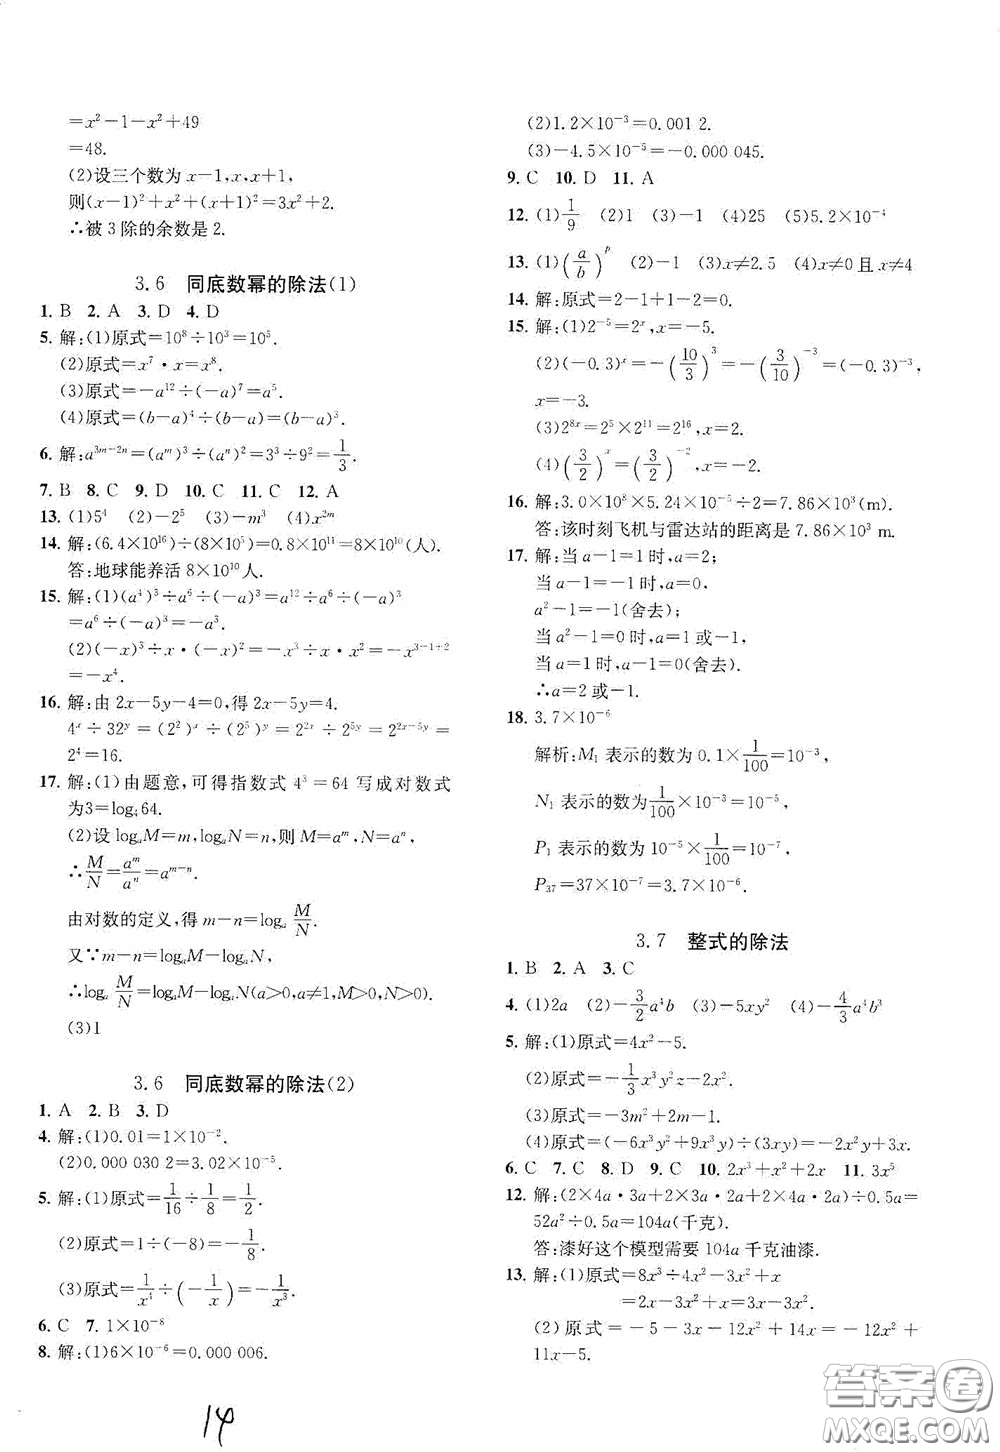 =x²-1-x²+49
=48.
(2)设三个数为x-1,x,x+1,
则(x-1)²+x²+(x+1)²=3x²+2.
∴被3除的余数是2.
3.6 同底数幂的除法(1)
1. B 2. A 3. D 4. D
5. 解:(1)原式=10⁸÷10³=10⁵.
(2)原式=x⁷·x=x⁸.
(3)原式=-a¹²÷(-a)⁷=a⁵.
(4)原式=(b-a)⁴÷(b-a)=(b-a)³.
6. 解:a³ᵐ⁻²ⁿ=(aᵐ)³÷(aⁿ)²=3³÷9²=1/3.
7. B 8. C 9. D 10. C 11. C 12. A
13. (1)5⁴ (2)-2⁵ (3)-m³ (4)x²ᵐ
14. 解:(6.4×10¹⁶)÷(8×10⁵)=0.8×10¹¹=8×10¹⁰(人).
答:地球能养活8×10¹⁰人.
15. 解:(1)(a⁴)³÷a⁶÷(-a)³=a¹²÷a⁶÷(-a)³
=a⁶÷(-a)³=-a³.
(2)(-x)³÷x·(-x)²=-x³÷x·x²=-x³⁻¹⁺²
=-x⁴.
16. 解:由2x-5y-4=0,得2x-5y=4.
4ˣ÷32ʸ=(2²)ˣ÷(2⁵)ʸ=2²ˣ÷2⁵ʸ=2²ˣ⁻⁵ʸ=
2⁴=16.
17. 解:(1)由题意,可得指数式4³=64写成对数式
为3=log₄64.
(2)设logₐM=m,logₐN=n,则M=aᵐ,N=aⁿ,
∴M/N=aᵐ/aⁿ=aᵐ⁻ⁿ.
由对数的定义,得m-n=logₐ M/N.
又∵m-n=logₐM-logₐN,
∴logₐ M/N=logₐM-logₐN(a>0,a≠1,M>0,N>0).
(3)1
3.6 同底数幂的除法(2)
1. A 2. B 3. D
4. 解:(1)0.01=1×10⁻².
(2)0.000 030 2=3.02×10⁻⁵.
5. 解:(1)原式=1/16÷1/8=1/2.
(2)原式=1÷(-8)=-1/8.
(3)原式=1/x⁴÷(-1/x)=-1/x³.
6. C 7. 1×10⁻⁸
8. 解:(1)6×10⁻⁶=0.000 006.
14
(2)1.2×10⁻³=0.001 2.
(3)-4.5×10⁻⁵=-0.000 045.
9. C 10. D 11. A
12. (1)1/9 (2)1 (3)-1 (4)25 (5)5.2×10⁻⁴
13. (1)(a/b)ᵖ (2)x≠-1 (3)x≠2.5 (4)x≠0且x≠4
14. 解:原式=2-1+1-2=0
15. 解:(1)2⁻⁵=2ˣ,x=-5.
(2)(-0.3)ˣ=-(10/3)³=-(3/10)⁻³=(-0.3)⁻³,
x=-3.
(3)2⁸ˣ=2⁵×2¹¹=2¹⁶,x=2.
(4)(3/2)ˣ=(3/2)⁻²,x=-2.
16. 解:3.0×10⁸×5.24×10⁻⁵÷2=7.86×10³(m).
答:该时刻飞机与雷达站的距离是7.86×10³ m.
17. 解:当a-1=1时,a=2;
当a-1=-1时,a=0,
a²-1=-1(舍去);
当a²-1=0时,a=1或-1,
当a=1时,a-1=0(舍去).
∴a=2或-1.
18. 3.7×10⁻⁶
解析:M₁表示的数为0.1×1/100=10⁻³,
N₁表示的数为1/100×10⁻³=10⁻⁵,
P₁表示的数为10⁻⁵×1/100=10⁻⁷,
P₃₇=37×10⁻⁷=3.7×10⁻⁶.
3.7 整式的除法
1. B 2. A 3. C
4. (1)2a (2)-3/2a⁴b (3)-5xy² (4)-4/3a⁴b³
5. 解:(1)原式=4x²-5.
(2)原式=-1/3x³y²z-2x².
(3)原式=-3m²+2m-1.
(4)原式=(-6x³y²+9x³y)÷(3xy)=-2x²y+3x².
6. C 7. C 8. D 9. C 10. 2x³+x²+2x 11. 3x⁵
12. 解:(2×4a·3a+2×4a·2a+2×2a·3a)÷0.5a=
52a²÷0.5a=104a(千克).
答:漆好这个模型需要104a千克油漆.
13. 解:(1)原式=8x³÷4x²-3x²+x
=2x-3x²+x=3x-3x².
(2)原式=-5-3x-12x²+14x=-12x²+
11x-5.
答案圈
MXQE.COM